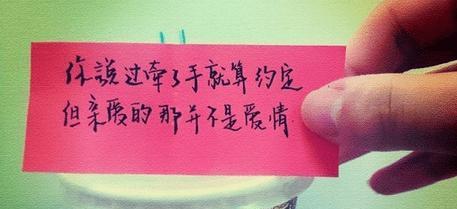 你說过牵了手就算约定
但亲爱的那并不是爱情